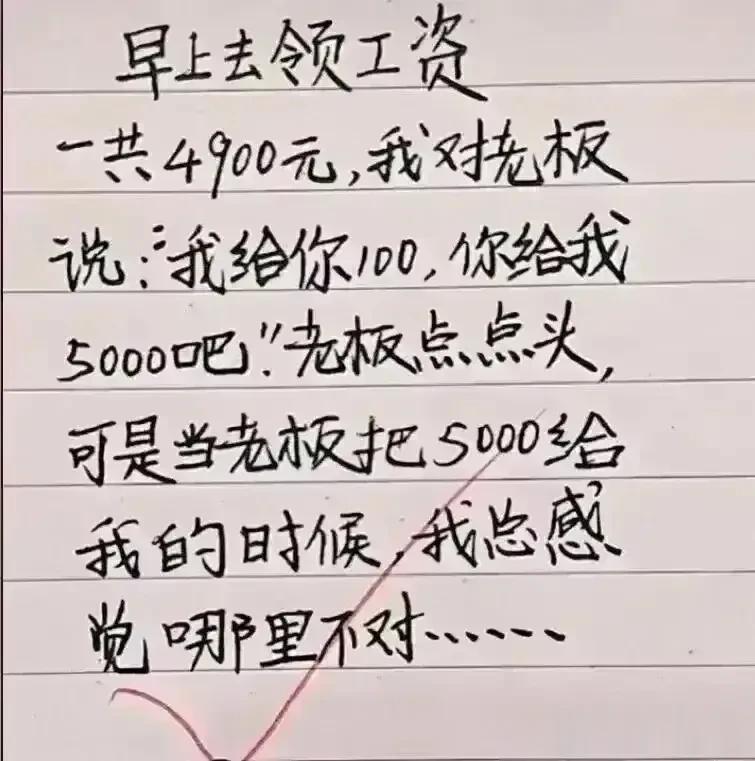 早上去领工资
一共4900元,我对老板
说:“我给你100,你给我
5000吧!”老板点点头,
可是当老板把5000给
我的时候,我总感
觉哪里不对……